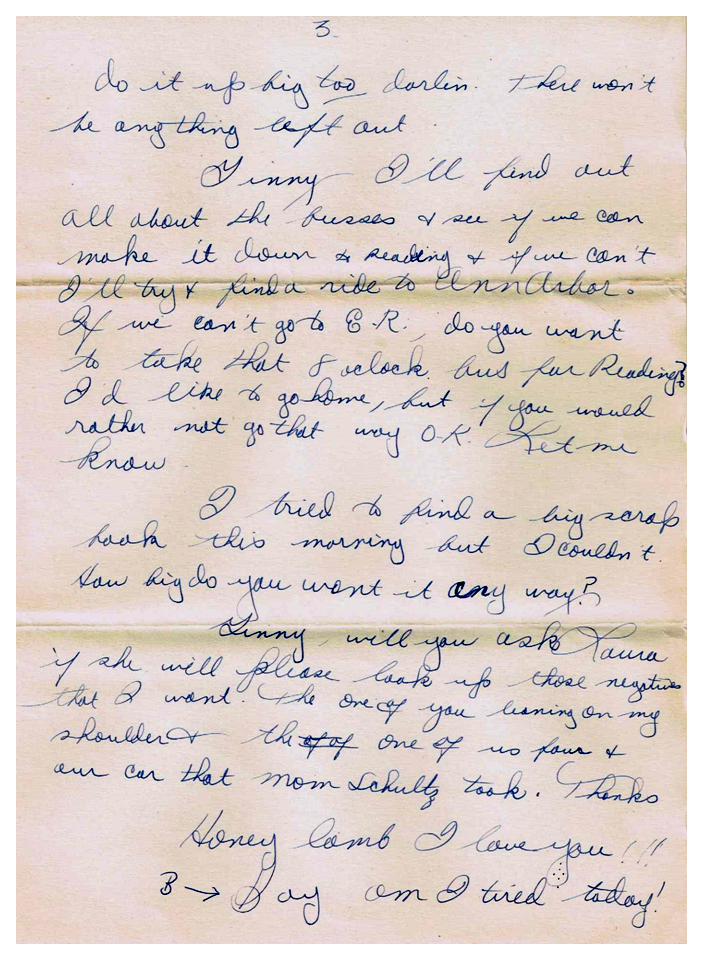 3.
do it up big too darlin. There won't
be anything left out.
Ginny I'll find out
all about the busses & see if we can
make it down to Reading & if we can't
I'll try & find a ride to Ann Arbor.
If we can't go to E.R., do you want
to take that 8 oclock bus for Reading?
I'd like to go home, but if you would
rather not go that way O.K. Let me
know.
I tried to find a big scrap
book this morning but I couldn't.
How big do you want it any way?
Ginny will you ask Laura
if she will please look up those negatives
that I want. The one of you leaning on my
shoulder & the of of one of us four &
our car that mom Schultz took. Thanks
Honey lamb I love you!!!
B → Boy am I tired today!